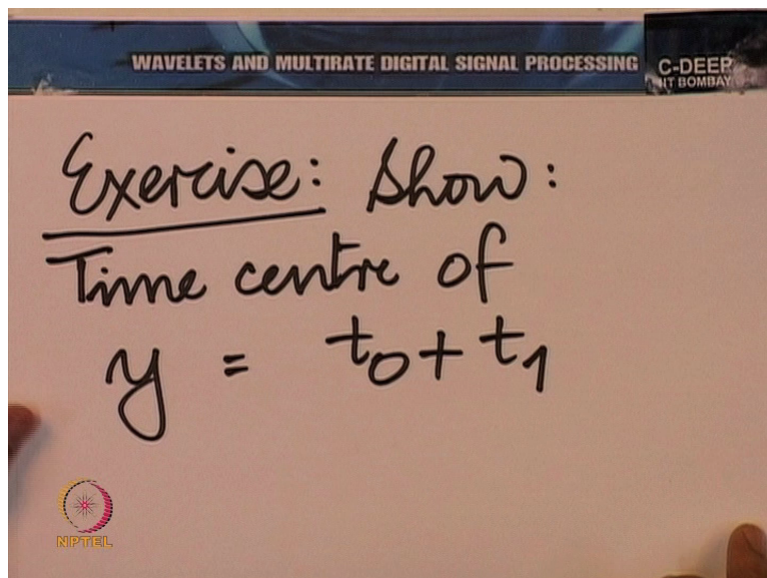 WAVELETS AND MULTIRATE DIGITAL SIGNAL PROCESSING
C-DEEP
IIT BOMBAY
Exercise: Show:
Time centre of
y = t₀ + t₁
NPTEL